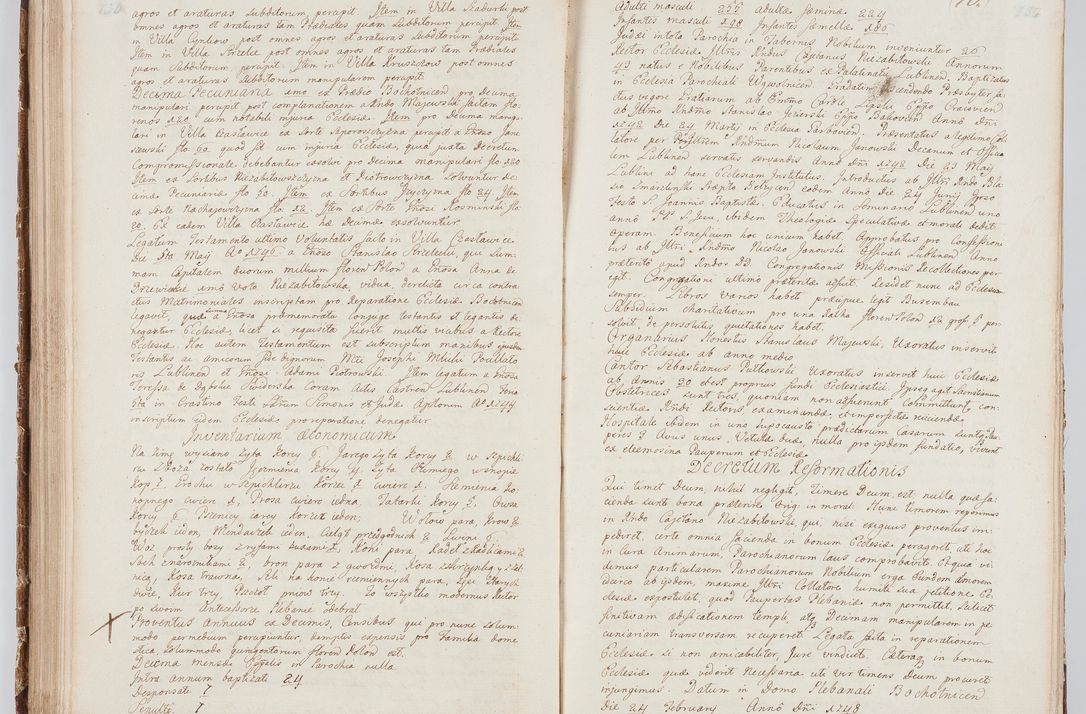 agros et araturas subditorum, percipit. Item in Villa
omnes agros et araturas tam Prædiales quam Subditorum percipit. Item
in Villa Cynkow post omnes agros et araturas subditorum percipit.
Item in Villa post omnes agros et araturas tam Prædiales
quam Subditorum percipit. Item in Villa Kruszzow post omnes
agros et araturas subditorum manipularem percipit
Decima Pecuniaria imo ex Prædio Bochotnicen pro decima
manipulari percipit post complanationem a Rndo Majewski factam flo-
renos 120 cum notabili injuria Ecclesiæ. Item pro Decima manipu-
lari in Villa ex Sorte Saporowczyzna percipit a Gnoso Jani
szewski flo 60 quod fit cum injuria Ecclesiæ, quia juxta Decretum
Compromissionale debebantur exsolvi pro Decima manipulari flo 120
Item ex Sortibus Niezabitowszczyzna et Piotrowczyzna solvuntur de-
cima Pecuniaria flo 50. Item ex Sortibus flo 24. Item
ex Sorte flo 12. Item ex Sorte Gnosi Kosminski flo
20. Ex eadem Villa hæ Decimæ exsolvuntur
Legatum Testamento ultimo Voluntatis facto in Villa
Die 5ta Maij Ao 1746 a Gnoso Stanislao qui sum-
mam Capitalem duorum millium floren Polon a Gnosa Anna de
Drzewickie imo voto Niezabitowska, vidua, derelicta circa contra-
ctus Matrimoniales inscriptam pro Reparatione Ecclesiæ Bochotnicen
legavit, quæ summa a Gnosa præmemorata conjuge testantis et legantis de-
negantur Ecclesiæ, licet si requisita fuerit multis vicibus a Rectore
Ecclesiæ. Hoc autem Testamentum est subscriptum manibus ejusdem
Testantis ac amicorum fide dignorum Mci Josephi
ris Lublinen et Gnosi Adami Piotrowski. Item legatum a Gnosa
Teressa de Swiderska Coram Actis Castren Lublinen Feria
5ta in Crastino Festi SSrum Simonis et Judæ Aptorum Ao 1744
inscriptum eidem Ecclesiæ pro reparatione denegatur
Inventarium Œconomicum
Na zimę wysiano żyta Korcy 6. Jarego żyta Korcy 2. w Szpichli-
rzu Zboża zostało Jęczmienia Korcy 4 żyta Zimiego w snopie
Kop 2. Grochu w Szpichlirzu Korzec 1 cwierci 1. Siemienia Ko-
nopnego cwierc 1. Prosa cwierc iedna, Tatarki Korcy 2. Owsa
Korcy 6. Pszenicy iarey Korzec ieden; Wołow para, Krow 2.
byczek ieden, Wieprz ieden. Cieląt
Woz prosty bosy z ryfami Koni para, Radeł z Radlicami 2.
Soch z narogwikami 2. bron para z gwozdzmi, Kosa
nica, Kosa trawna, Szli na konie rzemiennych para,
dwie, Kur trzy, Pszczoł pniow trzy. To wszystko modernus Rector
po swoim Antecessorze Plebanie odebrał
Proventus Annuus ex Decimis, Censibus que pro nunc solum-
modo per medium percipiuntur, demptis expensis pro Familia dome
stica, solummodo quingentorum floren Polon est.
Decima mensæ Eppalis in Parochia nulla
Intra annum baptizati 24
Desponsati 7
Sepulti 7
Adulti masculi 255 Adultæ fœminæ 224
Infantes masculi 198 Infantes Femellæ 186
Judæi in tota Parochia in Tabernis Nobilium inveniuntur 26
Rector Ecclesiæ Illris Rndus Cajetanus Niezabitowski Annorum
43 natus e Nobilibus Parentibus ex Palatinatu Lublinen. Baptizatus
in Ecclesia Parochiali Wąwolnicen. Gradatim ascendendo Presbyter fa-
ctus vigore Gratiarum ab Emmo Carolo Lipski Eppo Cracovien
ab Illmo Rndmo Stanislao Eppo Bakovien Anno Dni
1742 Die 24 Martij in Ecclesia Præsentatus a legitimo Col-
latore per Perillrem Rndmum Nicolaum Janowski Decanum et Officia-
lem Lublinen servatis servandis Anno Dni 1742 Die 23 Maij
Lublini ad hanc Ecclesiam Institutus. Introductus ab Illri Rndo Bla-
sio Smardzinski Præpto Betrycen eodem Anno Die 24 Junij Ipso
Festo S. Joannis Baptistæ. Educatus in Seminario Lublinen uno
anno PP S. Jesu, ibidem Theologiæ Speculativæ et morali dedit
operam. Beneficium hoc unicum habet Approbatus pro Confessioni-
bus ab Illri Rndmo Nicolao Janowski Officiali Lublinen Anno
præterito apud Rndos DD Congregationis Missionis Recollectiones per
egit. Congregatione ultimo præterita adfuit. Residet nunc ad Ecclesiam
semper. Libros varios habet præcipue legit Busembau
Subsidium charitativum pro una Ratha floren Polon 12 gros 5 per
solvit, de persolutis, quietationes habet.
Organarius Honestus Stanislaus Majewski, Uxoratus inservit
huic Ecclesiæ ab anno medio
Cantor Sebastianus Pitkowski Uxoratus inservit huic Ecclesiæ
ab Annis 20 et est proprius fundi Ecclesiastici. Ipse agit Sacristianum
Obstetrices sunt tres, quoniam non adfuerunt committunt con-
scientiæ Rndi Rectoris examinandæ, et imperfectæ rejiciendæ
Hospitale ibidem in uno hypocausto prædictarum Casarum sunt Pau-
peres 3 Vnus unus, Vetulæ duæ, nulla pro ijsdem fundatio, vivunt
ex eleemosina Pauperum et Ecclesiæ
Decretum Reformationis
Qui timet Deum, nihil negligit, Timere Deum, est, nulla quæ fa-
cienda sunt bona præterire Grig in moral. Hunc timorem reperimus
in Rndo Cajetano Niezabitowski, qui, nisi exiguus proventus im-
pediret, certe omnia facienda in bonum Ecclesiæ perageret, uti hoc
in Cura Animarum, Parochianorum laus comprobavit. Et qua vi-
dimus particularem Parochianorum Nobilium erga Eundem Amorem
idcirco ab ijsdem, maxime Illri Collatore humili sua petitione Ec-
clesiæ expostulet, quod Paupertas Plebaniæ non permittit, Saltem
finitivam ædificationem templi, atq Decimam manipularem in pe-
cuniariam transversam recuperet. Legata facta in reparationem
Ecclesiæ si non amicabiliter, Jure vindicet. Cætera in bonum
Ecclesiæ quæ viderit Necessaria uti vir timens Deum procuret
injungimus. Datum in Domo Plebanali Bochotnicen
Die 24 February Anno Dni 1748